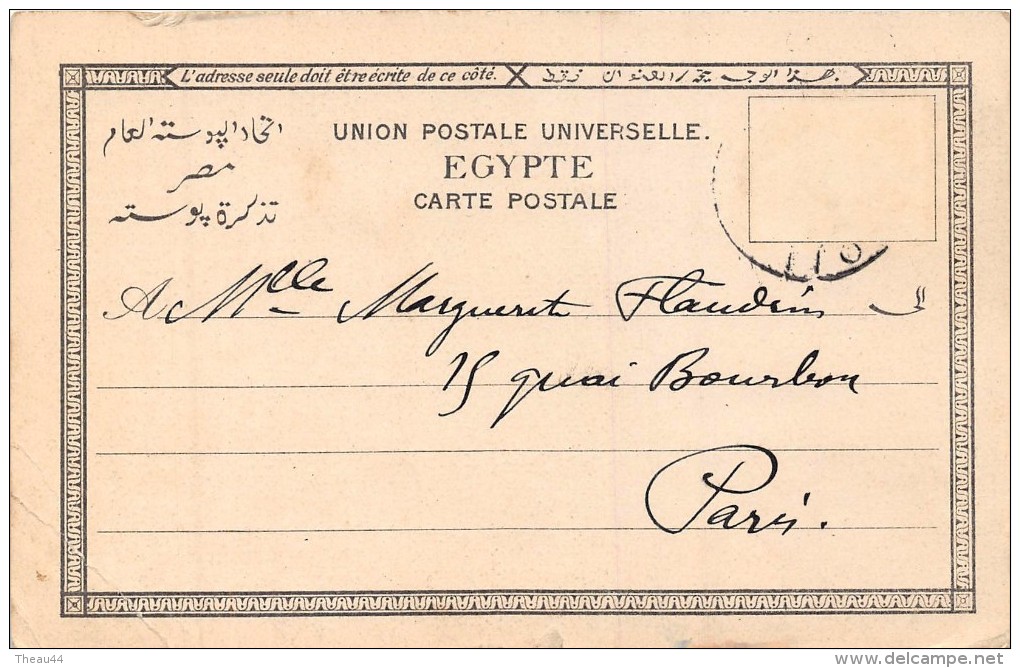 L'adresse seule doit être écrite de ce côté.
هذا الوجه فقط
اتحاد البوسته العام
مصر
تذكرة بوسته
UNION POSTALE UNIVERSELLE.
EGYPTE
CARTE POSTALE
A Mlle Marguerite Flandrin
15 quai Bourbon
Paris.
Theau44
www.delcampe.net